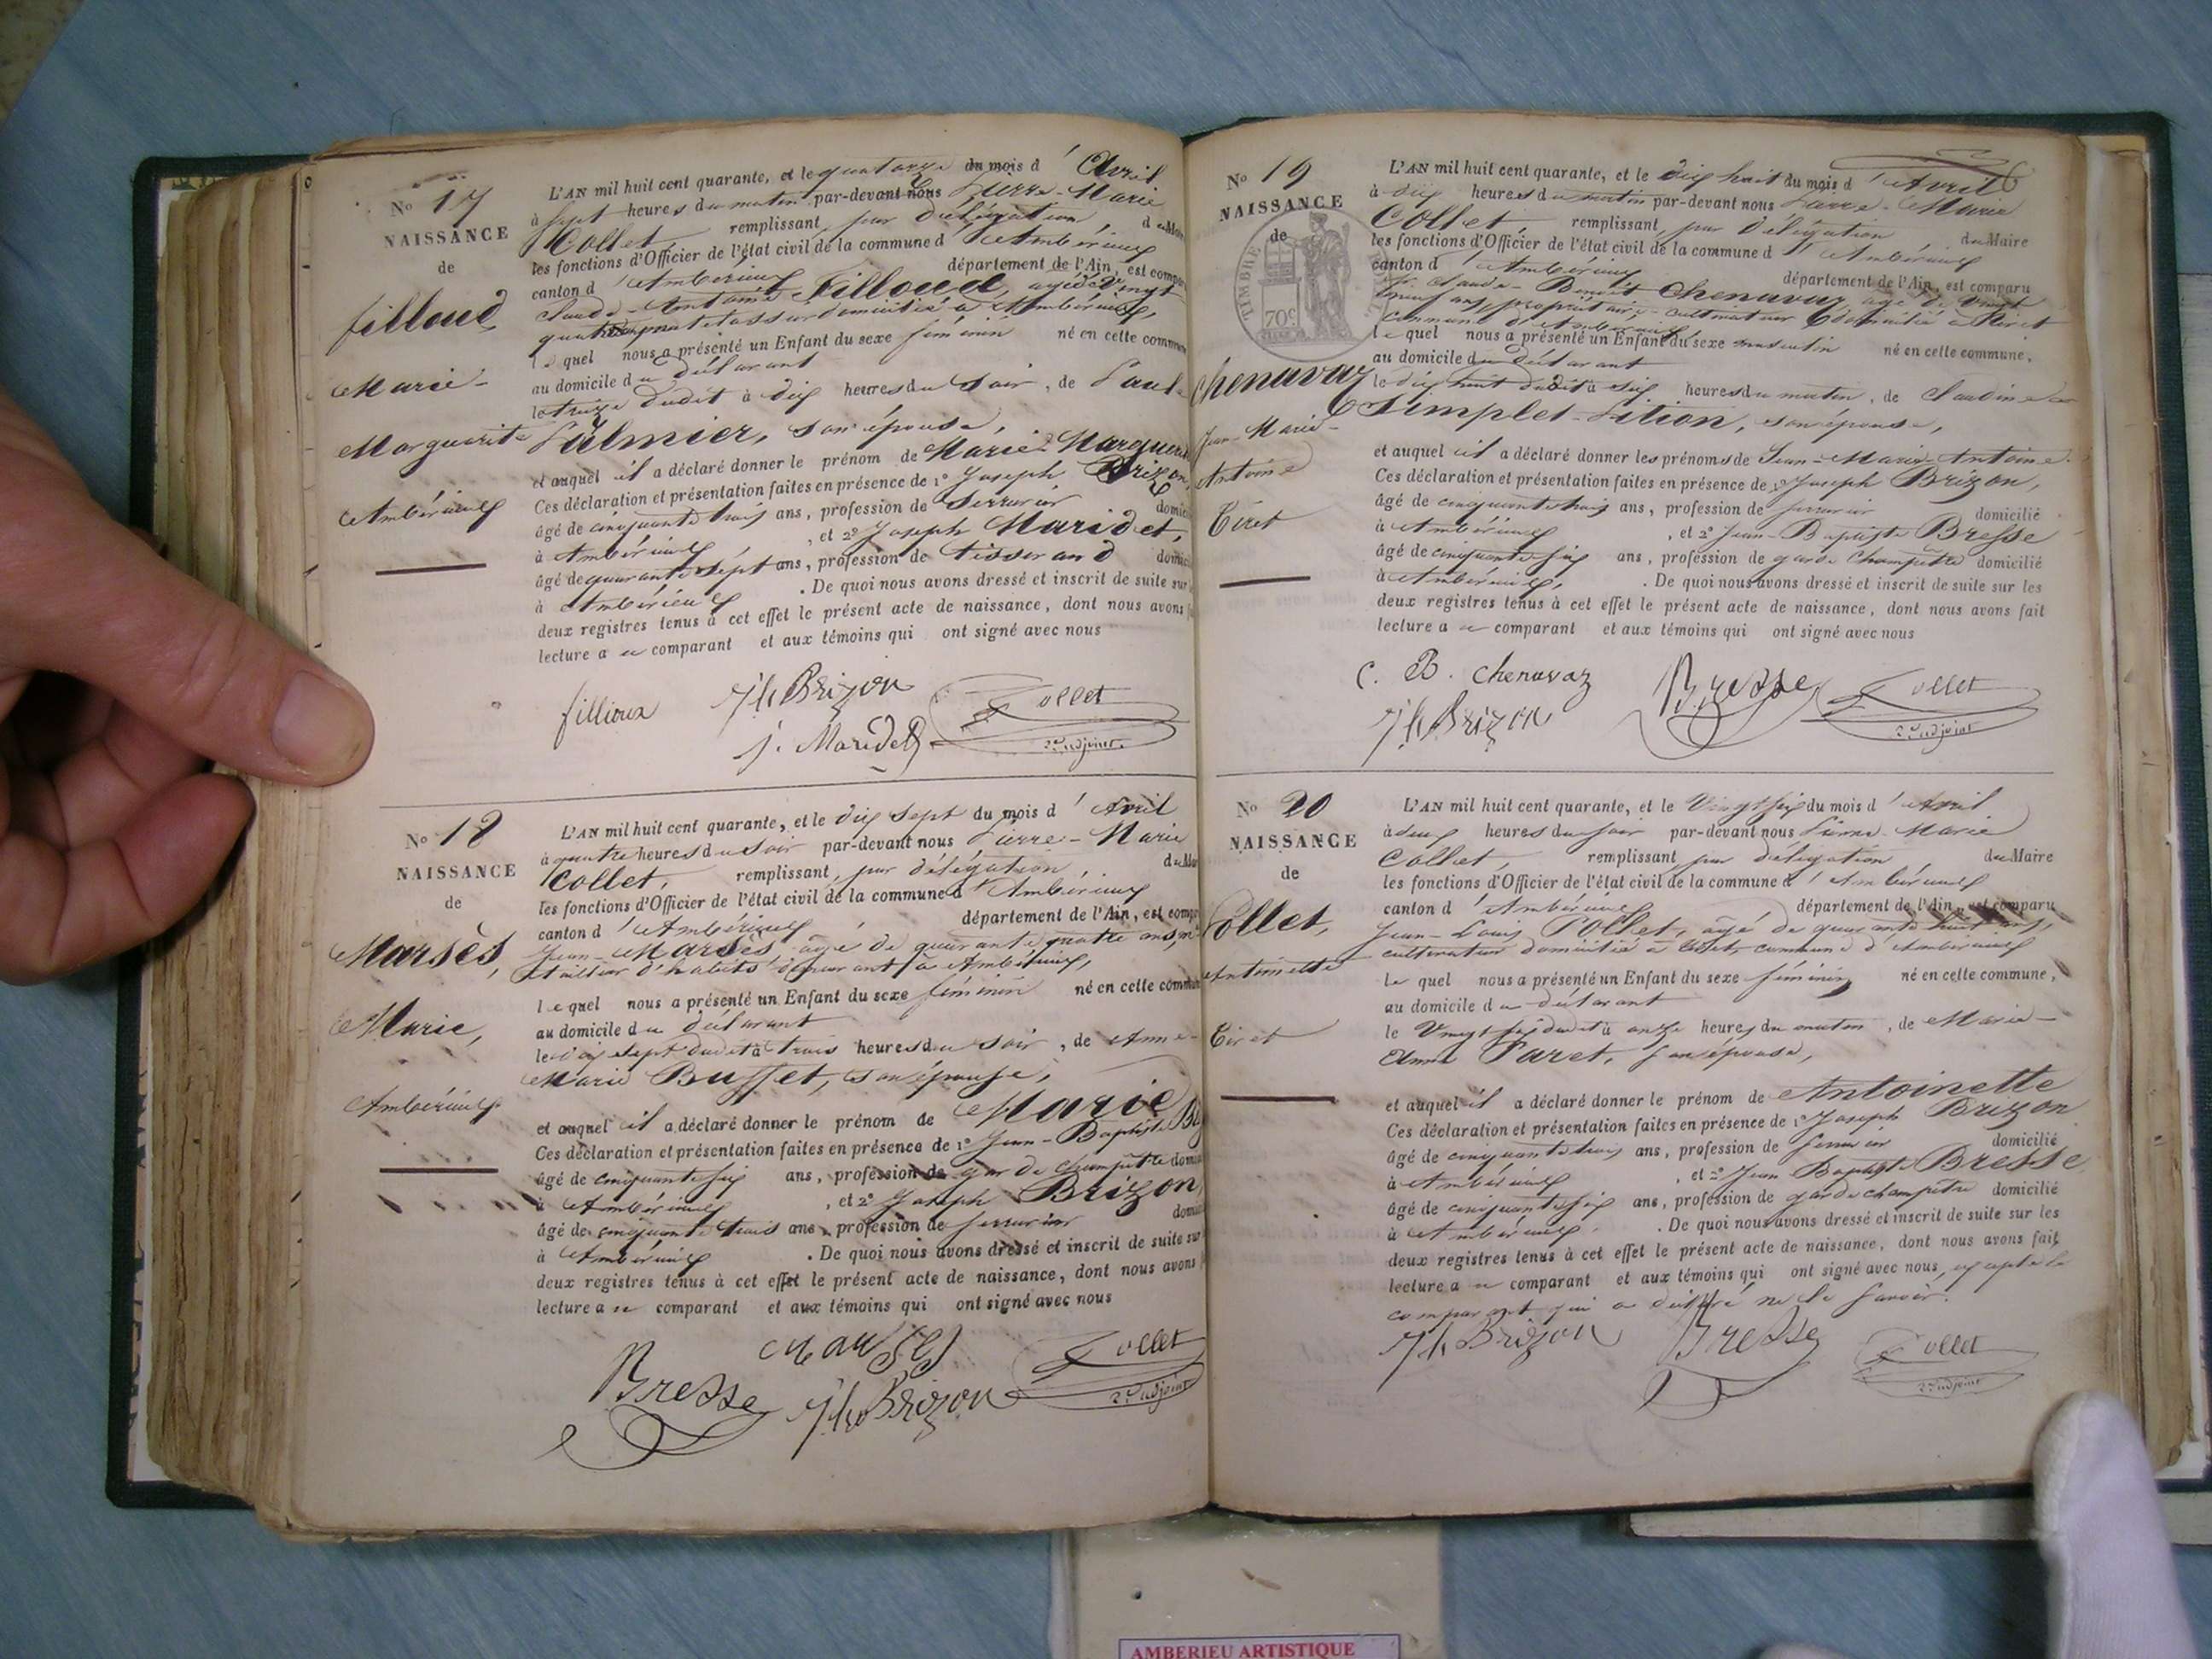 No 17
NAISSANCE
de
filloud
Marie-
Marguerite
Ambérieux
L'AN mil huit cent quarante, et le quatorze du mois d'Avril
à sept heures du matin par-devant nous Pierre-Marie
Collet remplissant, par délégation du Maire
les fonctions d'Officier de l'état civil de la commune d'Ambérieux
canton d'Ambérieux département de l'Ain, est compa
Claude-Antoine Filloud, âgé de vingt
domicilié à Ambérieux,
le quel nous a présenté un Enfant du sexe féminin né en cette commune
au domicile du déclarant
le treize dudit à dix heures du soir, de Paul
Palmier, son épouse,
et auquel il a déclaré donner le prénom de Marie-Marguerit
Ces déclaration et présentation faites en présence de 1º Joseph Brizon,
âgé de cinquante trois ans, profession de Serrurier domici
à Ambérieux, et 2º Joseph Maridet,
âgé de quarante sept ans, profession de tisserand domici
à Ambérieux. De quoi nous avons dressé et inscrit de suite sur
deux registres tenus à cet effet le présent acte de naissance, dont nous avons f
lecture au comparant et aux témoins qui ont signé avec nous
fillioux Jh Brizon Collet
j. Maridet 2e adjoint
No 18
NAISSANCE
de
Marsès,
Marie,
Ambérieux
L'AN mil huit cent quarante, et le dix sept du mois d'Avril
à quatre heures du soir par-devant nous Pierre-Marie
Collet, remplissant, par délégation du Mai
les fonctions d'Officier de l'état civil de la commune d'Ambérieux
canton d'Ambérieux département de l'Ain, est compa
Jean Marsès âgé de quarante quatre ans,
tailleur d'habits demeurant à Ambérieux,
le quel nous a présenté un Enfant du sexe féminin né en cette commun
au domicile du déclarant
le dix sept dudit à trois heures du soir, de Anne-
Marie Buffet, son épouse,
et auquel il a déclaré donner le prénom de Marie
Ces déclaration et présentation faites en présence de 1º Jean-Baptiste B
âgé de cinquante six ans, profession de garde champêtre domici
à Ambérieux, et 2º Joseph Brizon,
âgé de cinquante trois ans, profession de serrurier domici
à Ambérieux. De quoi nous avons dressé et inscrit de suite sur
deux registres tenus à cet effet le présent acte de naissance, dont nous avons
lecture au comparant et aux témoins qui ont signé avec nous
Bresse Jh Brizon Collet
2e adjoint
No 19
NAISSANCE
de
TIMBRE ROYAL
70c
Chenavaz
Jean-Marie-
Antoine
Tiret
L'AN mil huit cent quarante, et le dix huit du mois d'Avril
à dix heures du matin par-devant nous Pierre-Marie
Collet remplissant, par délégation du Maire
les fonctions d'Officier de l'état civil de la commune d'Ambérieux
canton d'Ambérieux département de l'Ain, est comparu
Claude-Benoit Chenavaz, âgé de vingt
neuf ans, propriétaire-cultivateur domicilié à Tiret
commune d'Ambérieux
le quel nous a présenté un Enfant du sexe masculin né en cette commune,
au domicile du déclarant
le dix huit dudit à six heures du matin, de Claudine
Simplet-Lition, son épouse,
et auquel il a déclaré donner les prénoms de Jean-Marie-Antoine.
Ces déclaration et présentation faites en présence de 1º Joseph Brizon,
âgé de cinquante trois ans, profession de serrurier domicilié
à Ambérieux, et 2º Jean-Baptiste Bresse
âgé de cinquante six ans, profession de garde champêtre domicilié
à Ambérieux. De quoi nous avons dressé et inscrit de suite sur les
deux registres tenus à cet effet le présent acte de naissance, dont nous avons fait
lecture au comparant et aux témoins qui ont signé avec nous
C. B. Chenavaz Bresse Collet
Jh Brizon 2e adjoint
No 20
NAISSANCE
de
Collet,
Antoinette
Tiret
L'AN mil huit cent quarante, et le Vingt six du mois d'Avril
à deux heures du soir par-devant nous Pierre-Marie
Collet, remplissant, par délégation du Maire
les fonctions d'Officier de l'état civil de la commune d'Ambérieux
canton d'Ambérieux département de l'Ain, est comparu
Jean-Louis Collet, âgé de quarante huit ans,
cultivateur domicilié à Tiret, commune d'Ambérieux
le quel nous a présenté un Enfant du sexe féminin né en cette commune,
au domicile du déclarant
le Vingt six dudit à onze heures du matin, de Marie-
Anne Paret, son épouse,
et auquel il a déclaré donner le prénom de Antoinette
Ces déclaration et présentation faites en présence de 1º Joseph Brizon
âgé de cinquante trois ans, profession de serrurier domicilié
à Ambérieux, et 2º Jean Baptiste Bresse
âgé de cinquante six ans, profession de garde champêtre domicilié
à Ambérieux. De quoi nous avons dressé et inscrit de suite sur les
deux registres tenus à cet effet le présent acte de naissance, dont nous avons fait
lecture au comparant et aux témoins qui ont signé avec nous, excepté le
comparant qui a déclaré ne le savoir.
Jh Brizon Bresse Collet
2e adjoint
AMBERIEU ARTISTIQUE